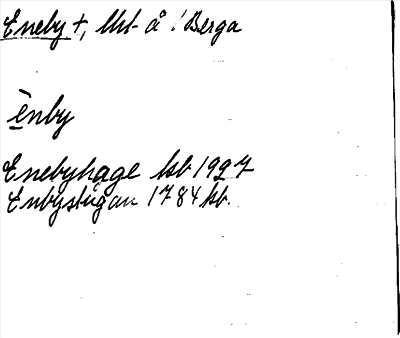 Eneby +, Uht å / Berga
ènby
Enebyhage ksb 1927
Enbystugan 1784 kb.